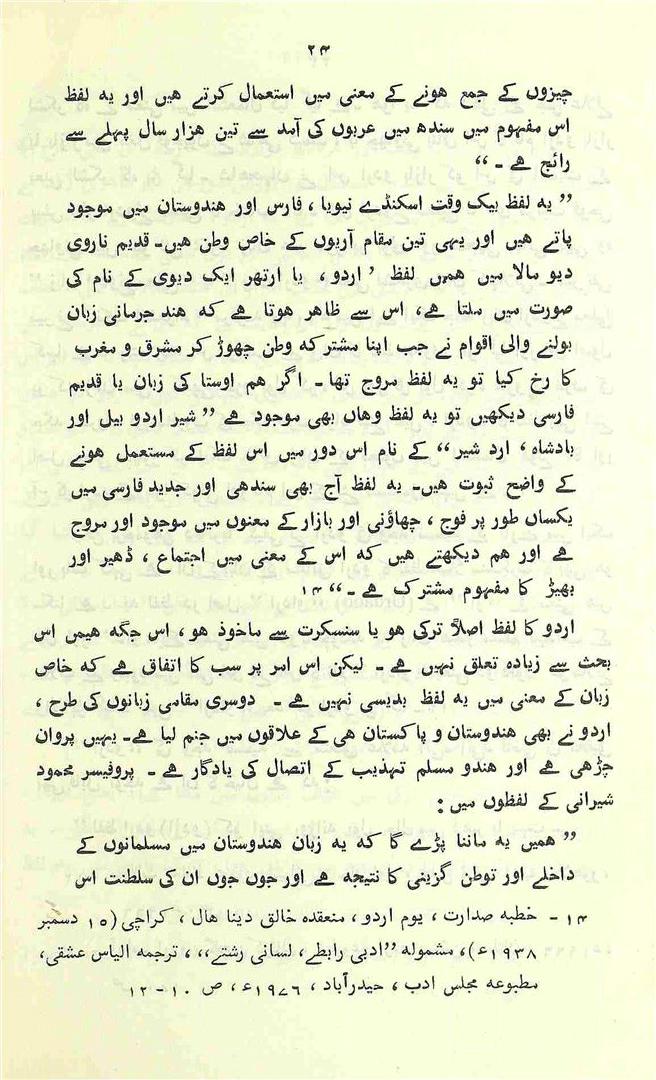 ۲۴
چیزوں کے جمع ہونے کے معنی میں استعمال کرتے ہیں اور یہ لفظ
اس مفہوم میں سندھ میں عربوں کی آمد سے تین ہزار سال پہلے سے
رائج ہے ۔ ،،
” یہ لفظ بیک وقت اسکنڈے نیویا ، فارس اور ہندوستان میں موجود
پاتے ہیں اور یہی تین مقام آریوں کے خاص وطن ہیں۔ قدیم ناروی
دیو مالا میں ہمیں لفظ ’ اردو ، یا ارتھر ایک دیوی کے نام کی
صورت میں ملتا ہے، اس سے ظاہر ہوتا ہے کہ ہند جرمانی زبان
بولنے والی اقوام نے جب اپنا مشترکہ وطن چھوڑ کر مشرق و مغرب
کا رخ کیا تو یہ لفظ مروج تھا۔ اگر ہم اوستا کی زبان یا قدیم
فارسی دیکھیں تو یہ لفظ وہاں بھی موجود ہے ” شیر اردو بیل اور
بادشاہ ، ارد شیر،، کے نام اس دور میں اس لفظ کے مستعمل ہونے
کے واضح ثبوت ہیں۔ یہ لفظ آج بھی سندھی اور جدید فارسی میں
یکساں طور پر فوج ، چھاؤنی اور بازار کے معنوں میں موجود اور مروج
ہے اور ہم دیکھتے ہیں کہ اس کے معنی میں اجتماع ، ڈھیر اور
بھیڑ کا مفہوم مشترک ہے ۔،، ۱۴
اردو کا لفظ اصلاً ترکی ہو یا سنسکرت سے ماخوذ ہو ، اس جگہ ہمیں اس
بحث سے زیادہ تعلق نہیں ہے ۔ لیکن اس امر پر سب کا اتفاق ہے کہ خاص
زبان کے معنی میں یہ لفظ بدیسی نہیں ہے ۔ دوسری مقامی زبانوں کی طرح ،
اردو نے بھی ہندوستان و پاکستان ہی کے علاقوں میں جنم لیا ہے۔ یہیں پروان
چڑھی ہے اور ہندو مسلم تہذیب کے اتصال کی یادگار ہے ۔ پروفیسر محمود
شیرانی کے لفظوں میں :
” ہمیں یہ ماننا پڑے گا کہ یہ زبان ہندوستان میں مسلمانوں کے
داخلے اور توطن گزینی کا نتیجہ ہے اور جوں جوں ان کی سلطنت اس
۱۴ - خطبہ صدارت ، یوم اردو ، منعقدہ خالق دینا ہال ، کراچی (۱۵ دسمبر
۱۹۳۸ء)، مشمولہ ”ادبی رابطے، لسانی رشتے،، ، ترجمہ الیاس عشقی،
مطبوعہ مجلس ادب ، حیدرآباد ، ۱۹۷۶ء ، ص ۱۰-۱۲